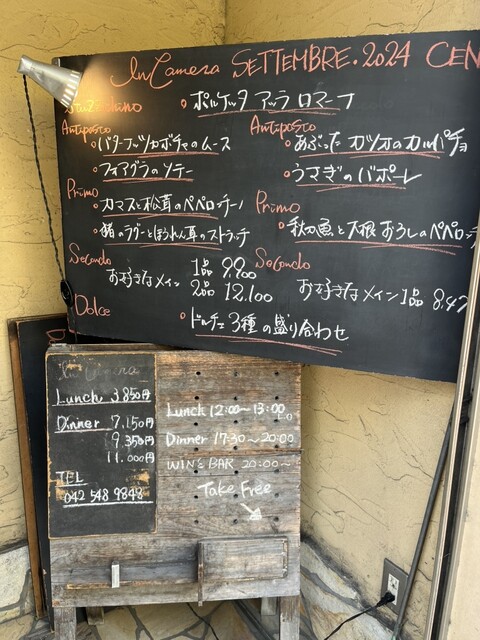 In Camera SETTEMBRE.2024 CEN
Stuzzichino
ポルケッタ アッラ ロマーナ
Antipasto
バターナッツカボチャのムース
フォアグラのソテー
Antipasto
あぶった カツオのカルパチョ
うさぎのバポーレ
Primo
カマスと松茸のペペロンチーノ
鴨のラグーとほうれん草のストラッチ
Primo
秋刀魚と大根おろしのペペロン
Secondo
お好きなメイン
1品 9.900
2品 12.100
Secondo
お好きなメイン1品 8.47
Dolce
ドルチェ3種の盛り合わせ
In Camera
Lunch 3.850円
Dinner 7.150円
9.350円
11.000円
TEL
042 548 9848
Lunch 12:00~13:00
L.O
Dinner 17:30~20:00
WIN'S BAR 20:00~
Take Free